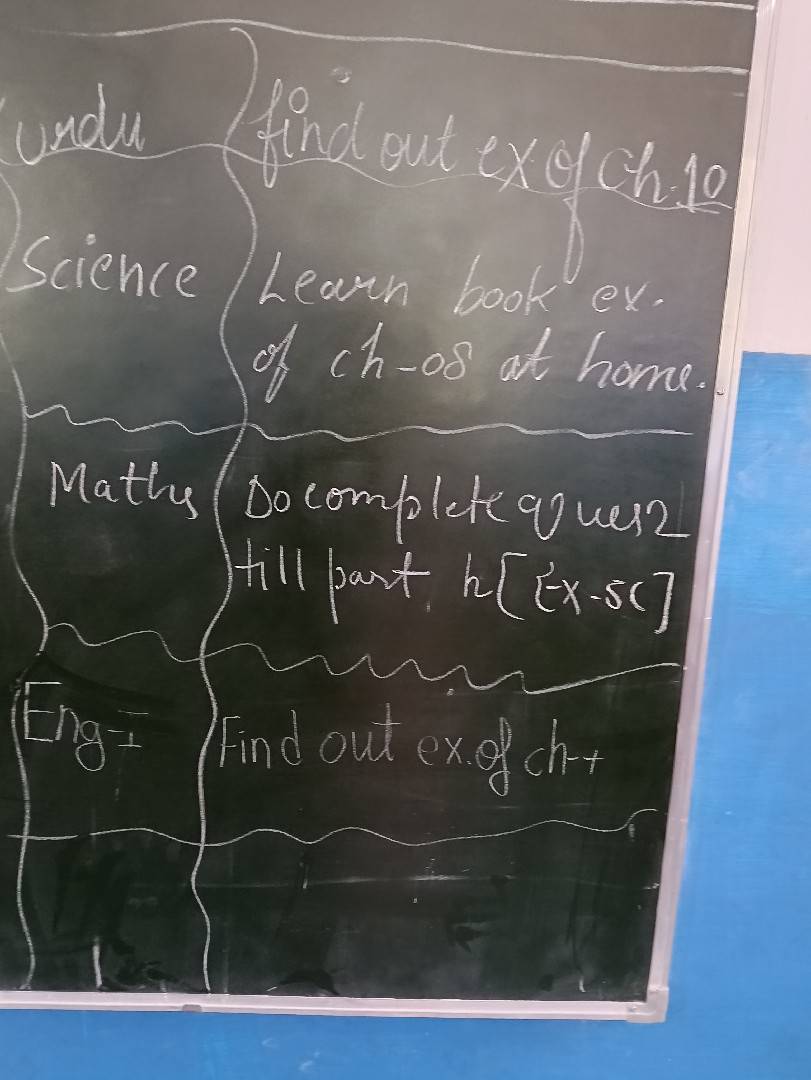 Urdu find out ex. of Ch. 10
Science Learn book ex.
of ch-08 at home.
Maths Do complete ques 2
till part h [Ex-5C]
Eng-I Find out ex. of ch-